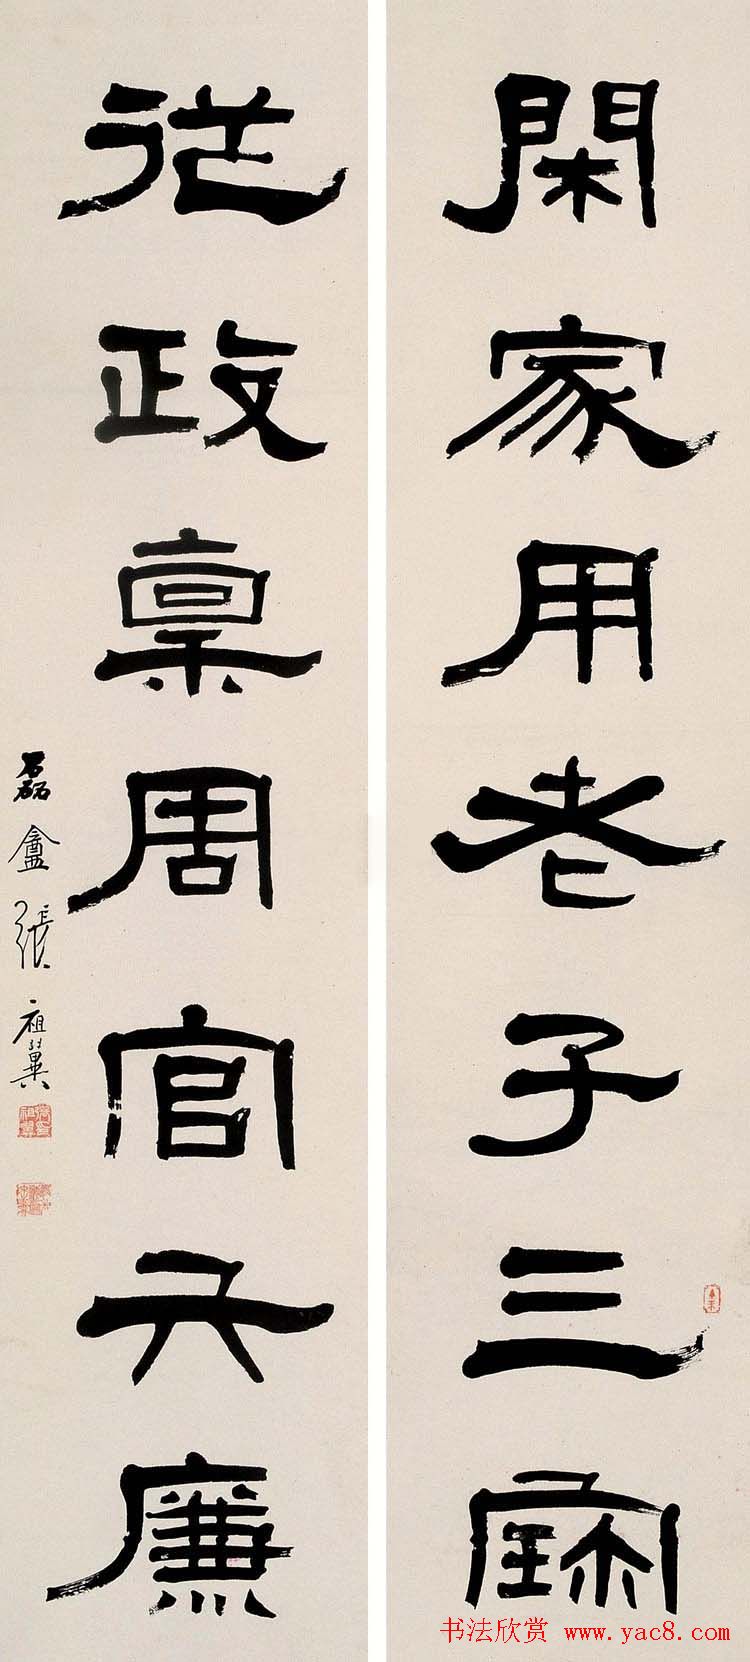 閑家用老子三寶
從政稟周官六廉
磊盦張祖翼
书法欣赏 www.yac8.com